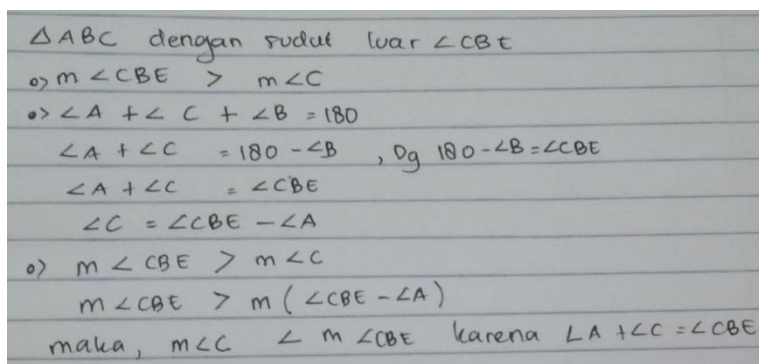 △ABC dengan sudut luar ∠CBE
o> m ∠CBE > m∠C
o> ∠A + ∠ C + ∠B = 180
∠A + ∠C = 180 - ∠B , Dg 180 - ∠B = ∠CBE
∠A + ∠C = ∠CBE
∠C = ∠CBE - ∠A
o> m ∠ CBE > m ∠C
m ∠CBE > m ( ∠CBE - ∠A )
maka, m∠C < m ∠CBE karena ∠A + ∠C = ∠CBE